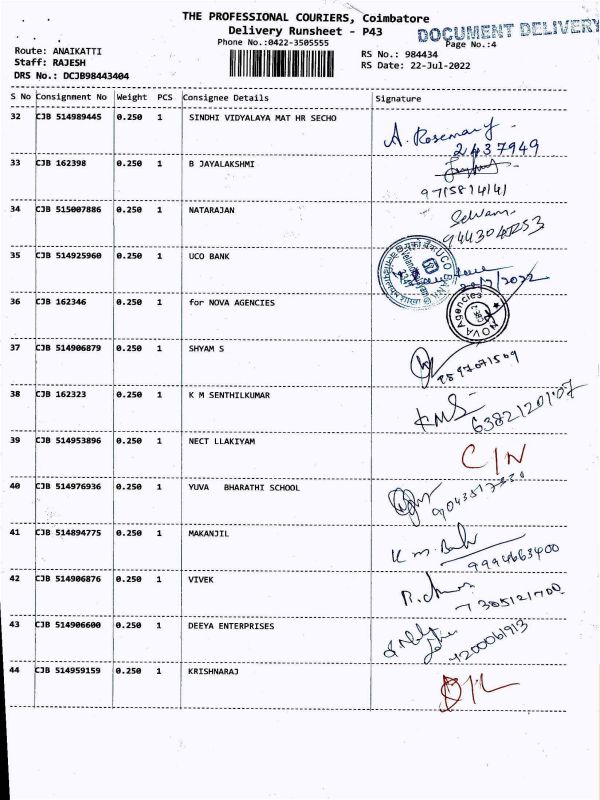 THE PROFESSIONAL COURIERS, Coimbatore
Delivery Runsheet - P43
DOCUMENT DELIVERY
Phone No.:0422-3505555
Page No.:4
Route: ANAIKATTI
RS No.: 984434
Staff: RAJESH
RS Date: 22-Jul-2022
DRS No.: DCJB98443404
S No Consignment No Weight PCS Consignee Details Signature
32 CJB 514989445 0.250 1 SINDHI VIDYALAYA MAT HR SECHO
A. Rosemary
2437949
33 CJB 162398 0.250 1 B JAYALAKSHMI
9715814141
34 CJB 515007886 0.250 1 NATARAJAN
Selvam
35 CJB 514925960 0.250 1 UCO BANK
UCO BANK
36 CJB 162346 0.250 1 for NOVA AGENCIES
NOVA Agencies
37 CJB 514906879 0.250 1 SHYAM S
38 CJB 162323 0.250 1 K M SENTHILKUMAR
KMS
6382120107
39 CJB 514953896 0.250 1 NECT LLAKIYAM
C/N
40 CJB 514976936 0.250 1 YUVA BHARATHI SCHOOL
41 CJB 514894775 0.250 1 MAKANJIL
9994663400
42 CJB 514906876 0.250 1 VIVEK
7305121700
43 CJB 514906600 0.250 1 DEEYA ENTERPRISES
7200061913
44 CJB 514959159 0.250 1 KRISHNARAJ
D/L